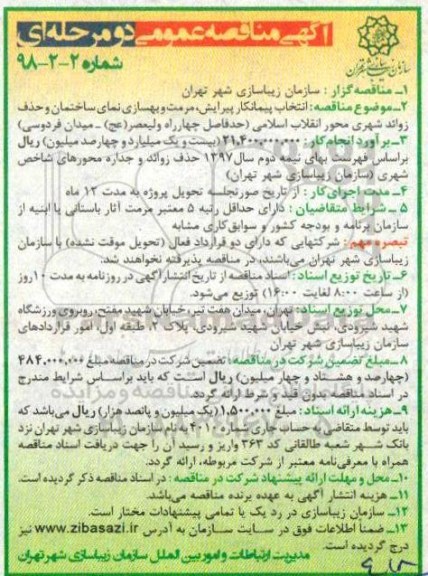 آگهی مناقصه عمومی دو مرحله‌ای
شماره ۲-۲-۹۸
سازمان زیباسازی شهر تهران
۱ـ مناقصه گزار : سازمان زیباسازی شهر تهران
۲ـ موضوع مناقصه: انتخاب پیمانکار پیرایش، مرمت و بهسازی نمای ساختمان و حذف
زوائد شهری محور انقلاب اسلامی (حدفاصل چهارراه ولیعصر(عج) ـ میدان فردوسی)
۳ـ برآورد انجام کار: ۲۱،۴۰۰،۰۰۰،۰۰۰(بیست و یک میلیارد و چهارصد میلیون) ریال
براساس فهرست بهای نیمه دوم سال۱۳۹۷ حذف زوائد و جداره محورهای شاخص
شهری (سازمان زیباسازی شهر تهران)
۴ـ مدت اجرای کار : از تاریخ صورتجلسه تحویل پروژه به مدت ۱۲ ماه
۵ ـ شرایط متقاضیان : دارای حداقل رتبه ۵ معتبر مرمت آثار باستانی یا ابنیه از
سازمان برنامه و بودجه کشور و سوابق کاری مشابه
تبصره مهم: شرکتهایی که دارای دو قرارداد فعال (تحویل موقت نشده) با سازمان
زیباسازی شهر تهران می‌باشند، در مناقصه پذیرفته نخواهند شد.
۶ـ تاریخ توزیع اسناد: اسناد مناقصه از تاریخ انتشار آگهی در روزنامه به مدت ۱۰ روز
(از ساعت ۸:۰۰ لغایت ۱۶:۰۰) توزیع می‌شود.
۷ـ محل توزیع اسناد: تهران، میدان هفت تیر، خیابان شهید مفتح، روبروی ورزشگاه
شهید شیرودی، نبش خیابان شهید شیرودی، پلاک ۲، طبقه اول، امور قراردادهای
سازمان زیباسازی شهر تهران
۸ـ مبلغ تضمین شرکت در مناقصه: تضمین شرکت در مناقصه مبلغ ۴۸۴،۰۰۰،۰۰۰
(چهارصد و هشتاد و چهار میلیون) ریال است که باید براساس شرایط مندرج
در اسناد مناقصه بدون قید و شرط ارائه گردد.
۹ـ هزینه ارائه اسناد: مبلغ ۱،۵۰۰،۰۰۰(یک میلیون و پانصد هزار) ریال می‌باشد که
باید توسط متقاضی به حساب جاری شماره ۴۰۱۰ به نام سازمان زیباسازی شهر تهران نزد
بانک شهر شعبه طالقانی کد ۳۶۳ واریز و رسید آن را جهت دریافت اسناد مناقصه
همراه با معرفی‌نامه معتبر از شرکت مربوطه، ارائه گردد.
۱۰ـ محل و مهلت ارائه پیشنهاد شرکت در مناقصه : در اسناد مناقصه ذکر گردیده است.
۱۱ـ هزینه انتشار آگهی به عهده برنده مناقصه می‌باشد.
۱۲ـ سازمان زیباسازی در رد یک یا تمامی پیشنهادات مختار است.
۱۳ـ ضمناً اطلاعات فوق در سایت سازمان به آدرس www.zibasazi.ir نیز
درج گردیده است.
مدیریت ارتباطات و امور بین الملل سازمان زیباسازی شهر تهران